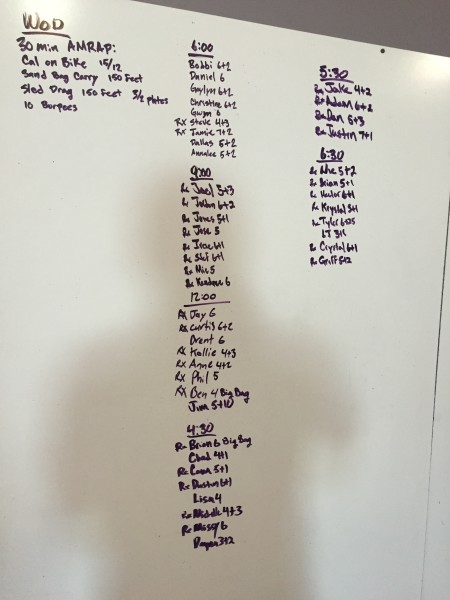 WOD
30 min AMRAP:
Cal on Bike 15/12
Sand Bag Carry 150 Feet
Sled Drag 150 Feet 3/2 plates
10 Burpees
6:00
Bobbi 6+2
Daniel 6
Gaylyn 6+2
Christine 6+2
Gwyn 6
RX Steve 4+3
RX Jamie 7+2
Dallas 5+2
Annalee 5+2
9:00
Rx Joel 5+3
Rx 6+2
Rx James 5+1
Rx Jose 5
Rx 6+1
Rx 6+1
Rx 5
Rx 6
12:00
RX Jay 6
RX Curtis 6+2
Brent 6
RX Kallie 4+3
RX Anne 4+2
RX Phil 5
RX Ben 4 Big Bag
Jim 5+10
4:30
Rx Brian 6 Big Bag
Chad 4+1
Rx 5+1
Rx Dustin 6+1
Lisa 4
Rx Middle 4+3
Rx Missy 6
3+2
5:30
Rx Jake 4+2
Rx Adam 6+2
Rx Dan 6+3
Rx Justin 7+1
6:30
Rx 5+2
Rx Brian 5+1
Rx Hector 6+1
Rx Krystal 5+1
Rx Tyler
LT
Rx Crystal 6+1
Rx Griff 5+2